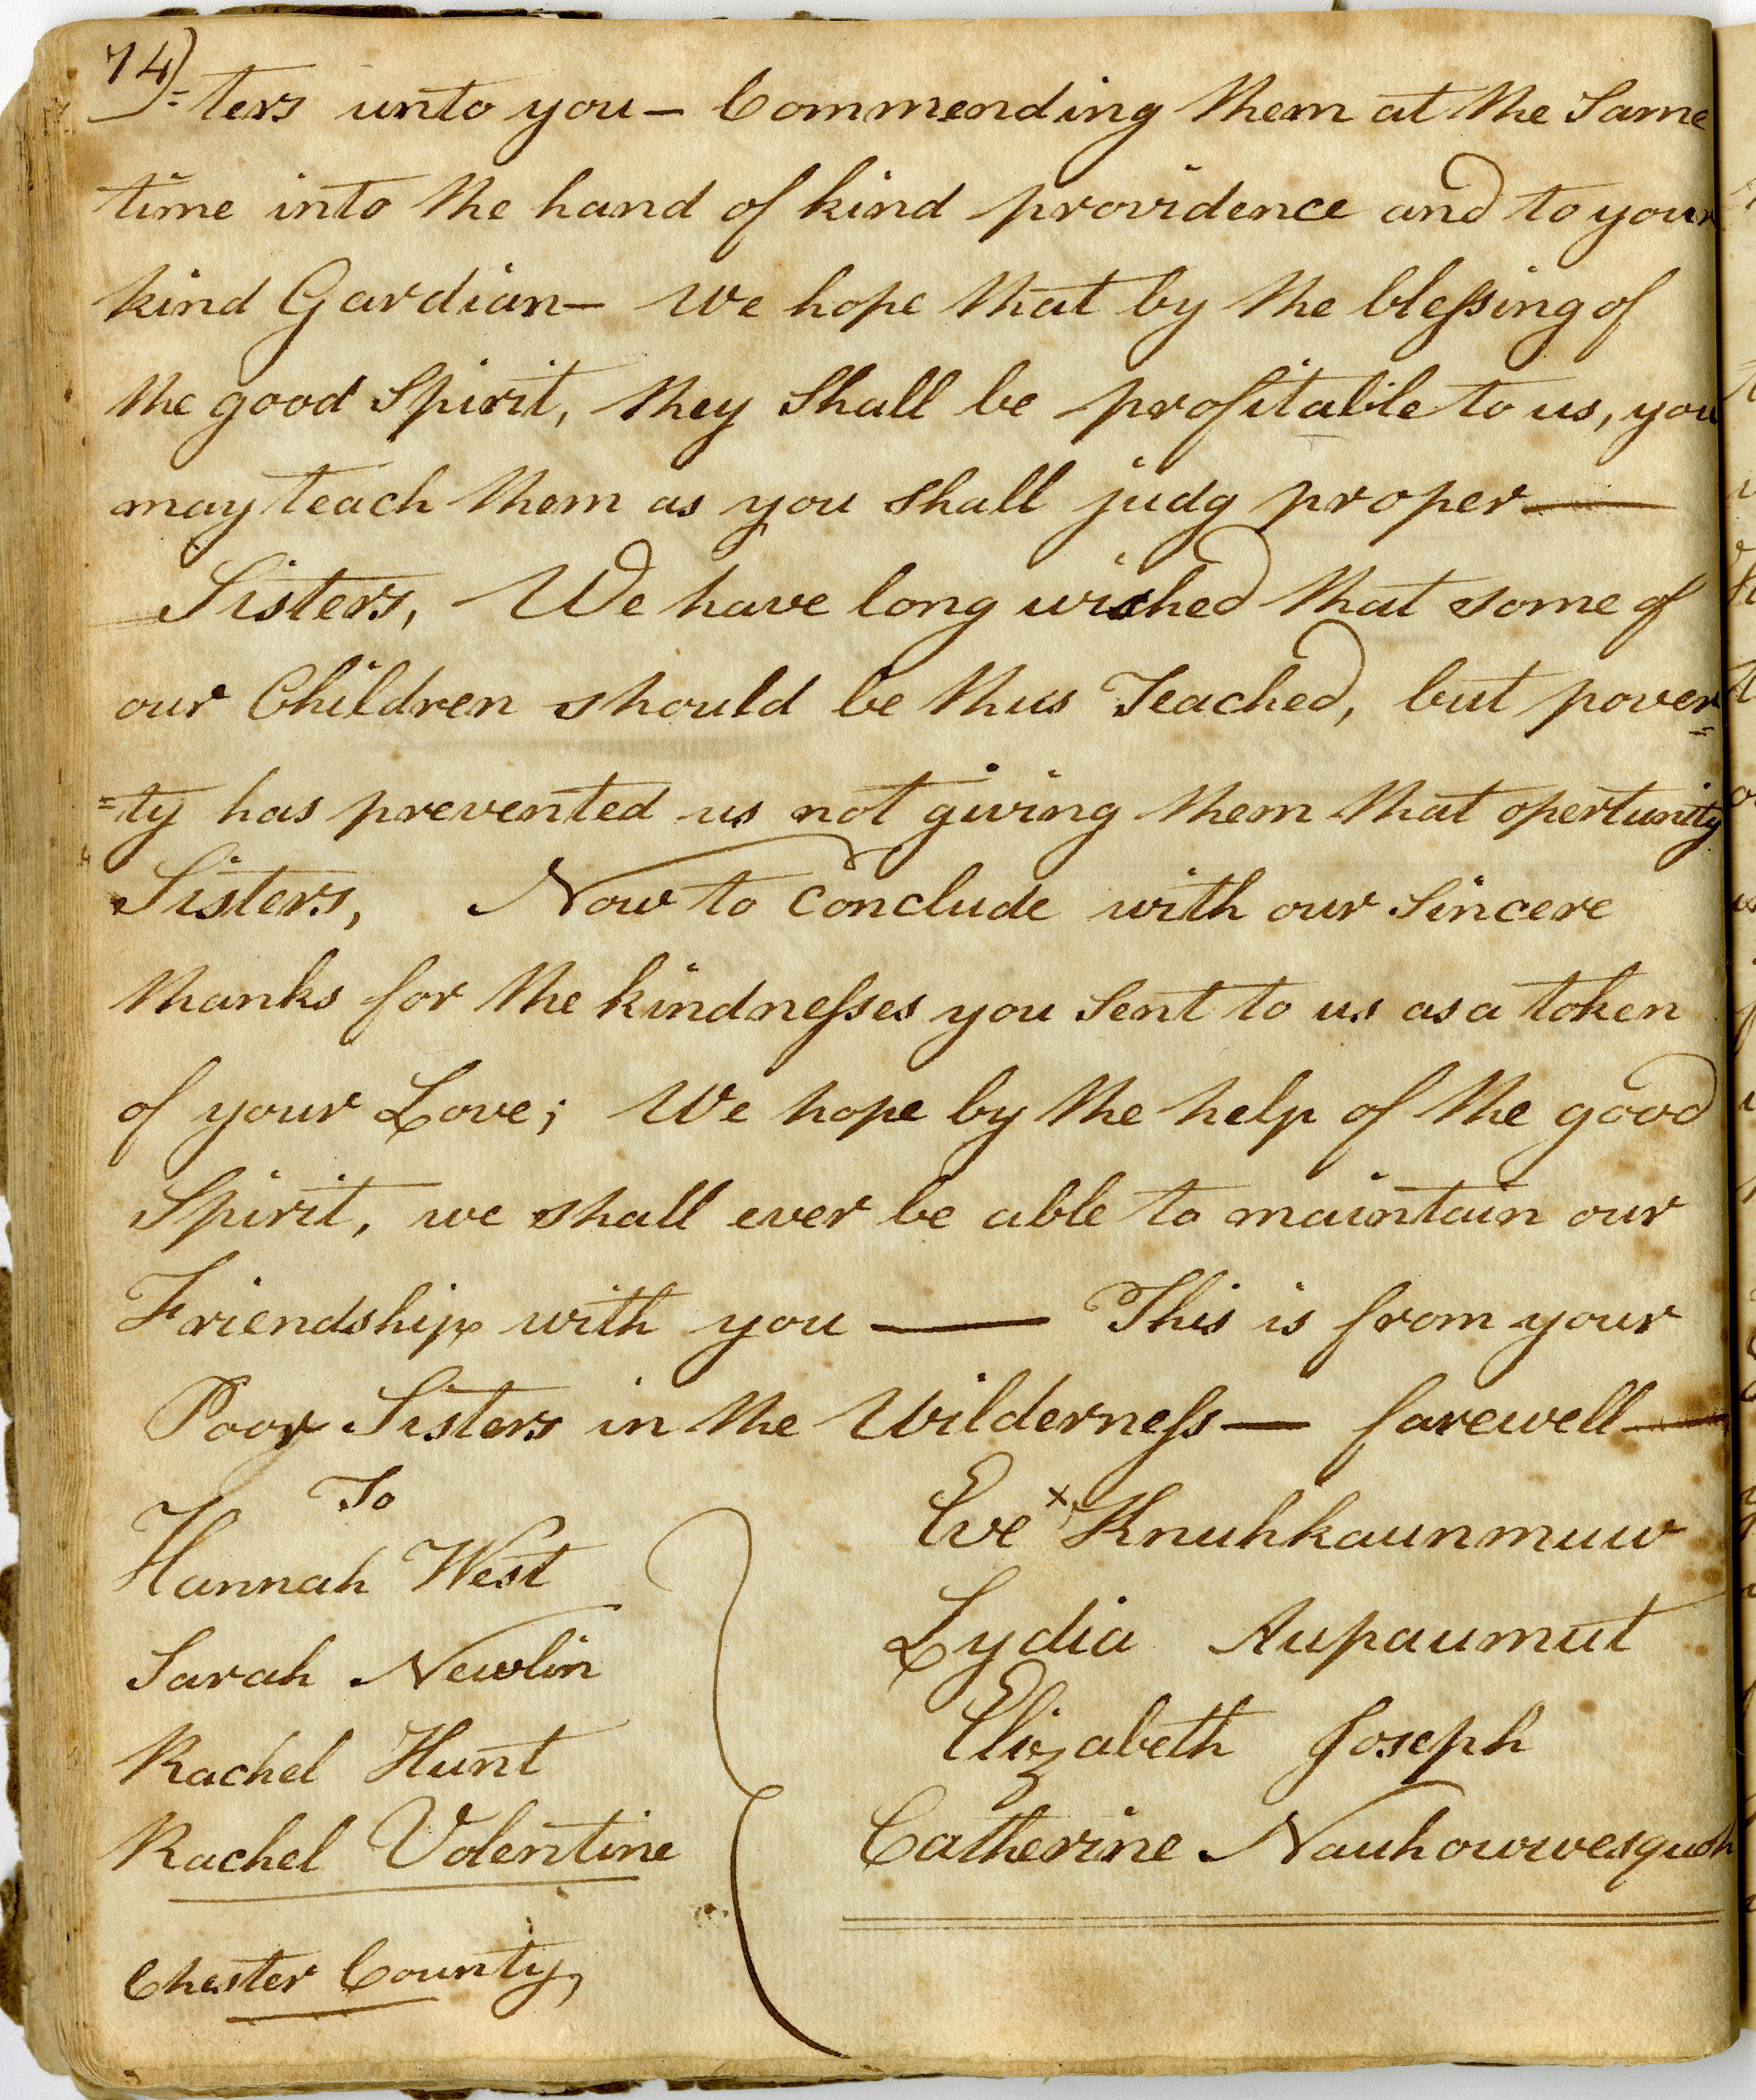 74)
=ters unto you — Commending them at the Same
time into the hand of kind providence and to your
kind Gardian — We hope that by the blessing of
the good Spirit, they Shall be profitable to us, you
may teach them as you shall judg proper —
Sisters, We have long wished that some of
our Children should be thus Teached, but pover=
=ty has prevented us not giving them that opertunity
Sisters, Now to conclude with our Sincere
thanks for the kindnesses you Sent to us as a token
of your Love; We hope by the help of the good
Spirit, we shall ever be able to maintain our
Friendship with you — This is from your
Poor Sisters in the Wilderness — farewell —
To
Hannah West
Sarah Newlin
Rachel Hunt
Rachel Volentine
Chester County,
Eve x Knuhkaunmuw
Lydia Aupaumut
Elizabeth Joseph
Catherine Nauhowwesquoh